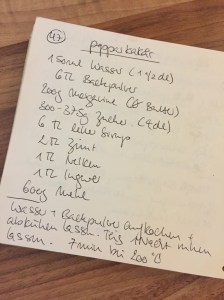 47
pepparkakor
1 Schale Wasser (1 1/2 dl)
6 TL Backpulver
200g Margarine (& Butter)
300-375g Zucker (4 dl)
6 TL heller Sirup
2 TL Zimt
1 TL Nelken
1 TL Ingwer
600g Mehl
Wasser + Backpulver aufkochen +
abkühlen lassen. Teig 1 Nacht ruhen
lassen. 7 min bei 200°C